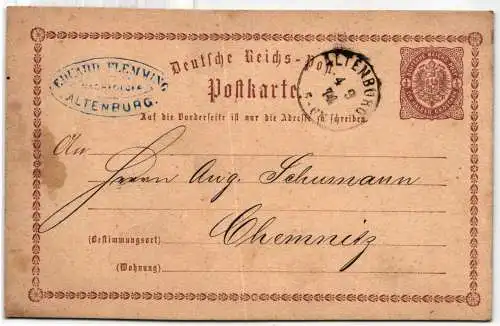 EDUARD FLEMMING
ALTENBURG.
Deutsche Reichs-Post.
ALTENBURG
4 9
74
Postkarte
Auf die Vorderseite ist nur die Adresse zu schreiben.
An
Herrn Aug. Schumann
Chemnitz
(Bestimmungsort)
(Wohnung)